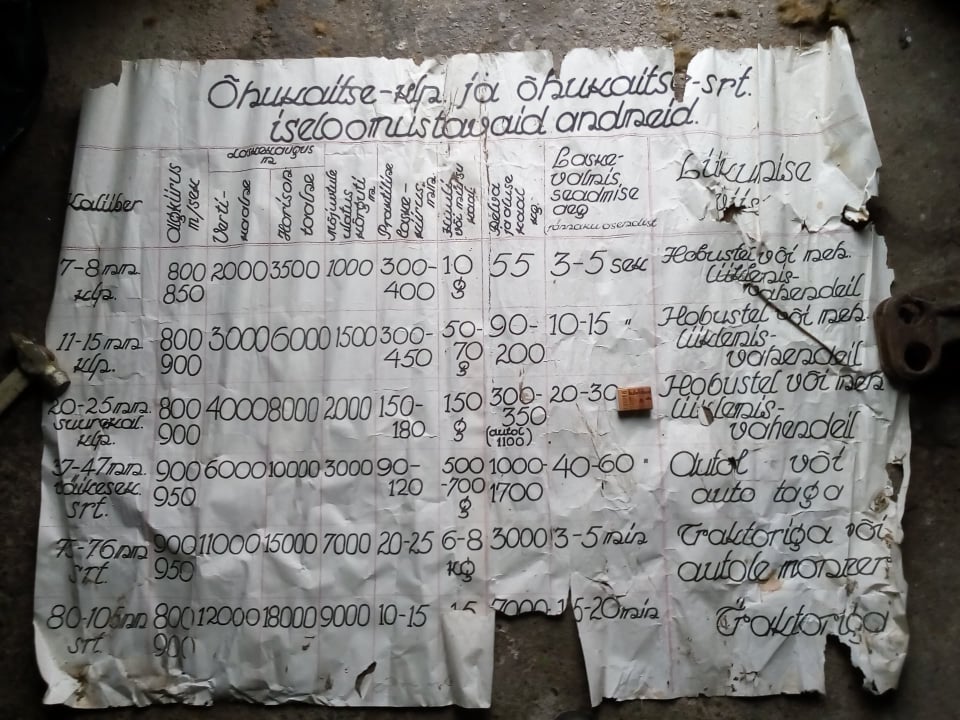 Õhukaitse-klp. ja õhukaitse-srt.
iseloomustavaid andmeid.
Kaliiber
Algkiirus m/sek
Laskekaugus m
Verti-kaalne
Horison-taalne
Mõjundule ulatus kõrguti m
Praktiline laske-kiirus, min.
Kuuli või mürsu kaal
Relva ja aluse kaal kg.
Laske-valmis seadmise aeg
rännakuasendist
Liikumise
viis
7-8 mm klp. 800 850 2000 3500 1000 300-400 10 g 55 3-5 sek Hobustel või meh. liiklemis-vahendeil
11-15 mm klp. 800 900 3000 6000 1500 300-450 50-70 g 90-200 10-15 " Hobustel või meh. liiklemis-vahendeil
20-25 mm. suurekal. klp. 800 900 4000 8000 2000 150-180 150 g 300-350 (autol 1100) 20-30 Hobustel või meh liiklemis-vahendeil
37-47 mm. väikesek. srt. 900 950 6000 10000 3000 90-120 500-700 g 1000-1700 40-60 " Autol või auto taga
75-76 mm srt. 900 950 11000 15000 7000 20-25 6-8 kg 3000 3-5 min Traktoriga või autole monteer
80-105 mm srt. 800 900 12000 18000 9000 10-15 15 7000- 15-20 min Traktoriga